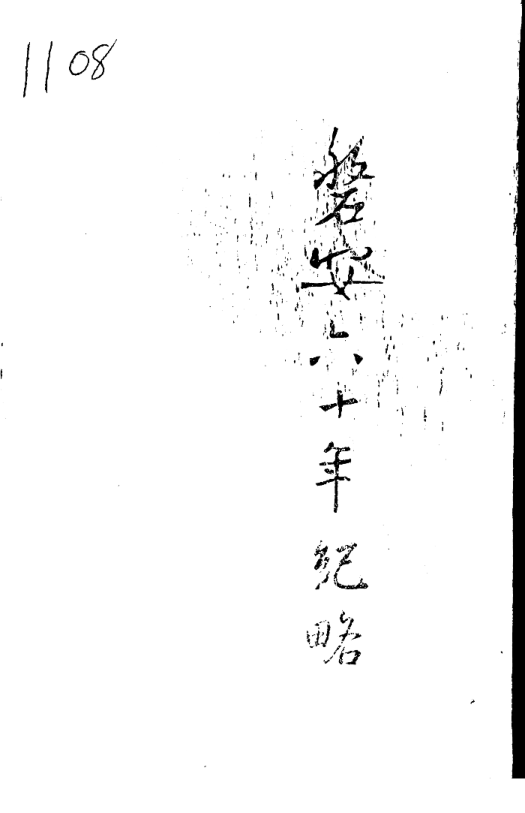 1108
磐安六十年纪略